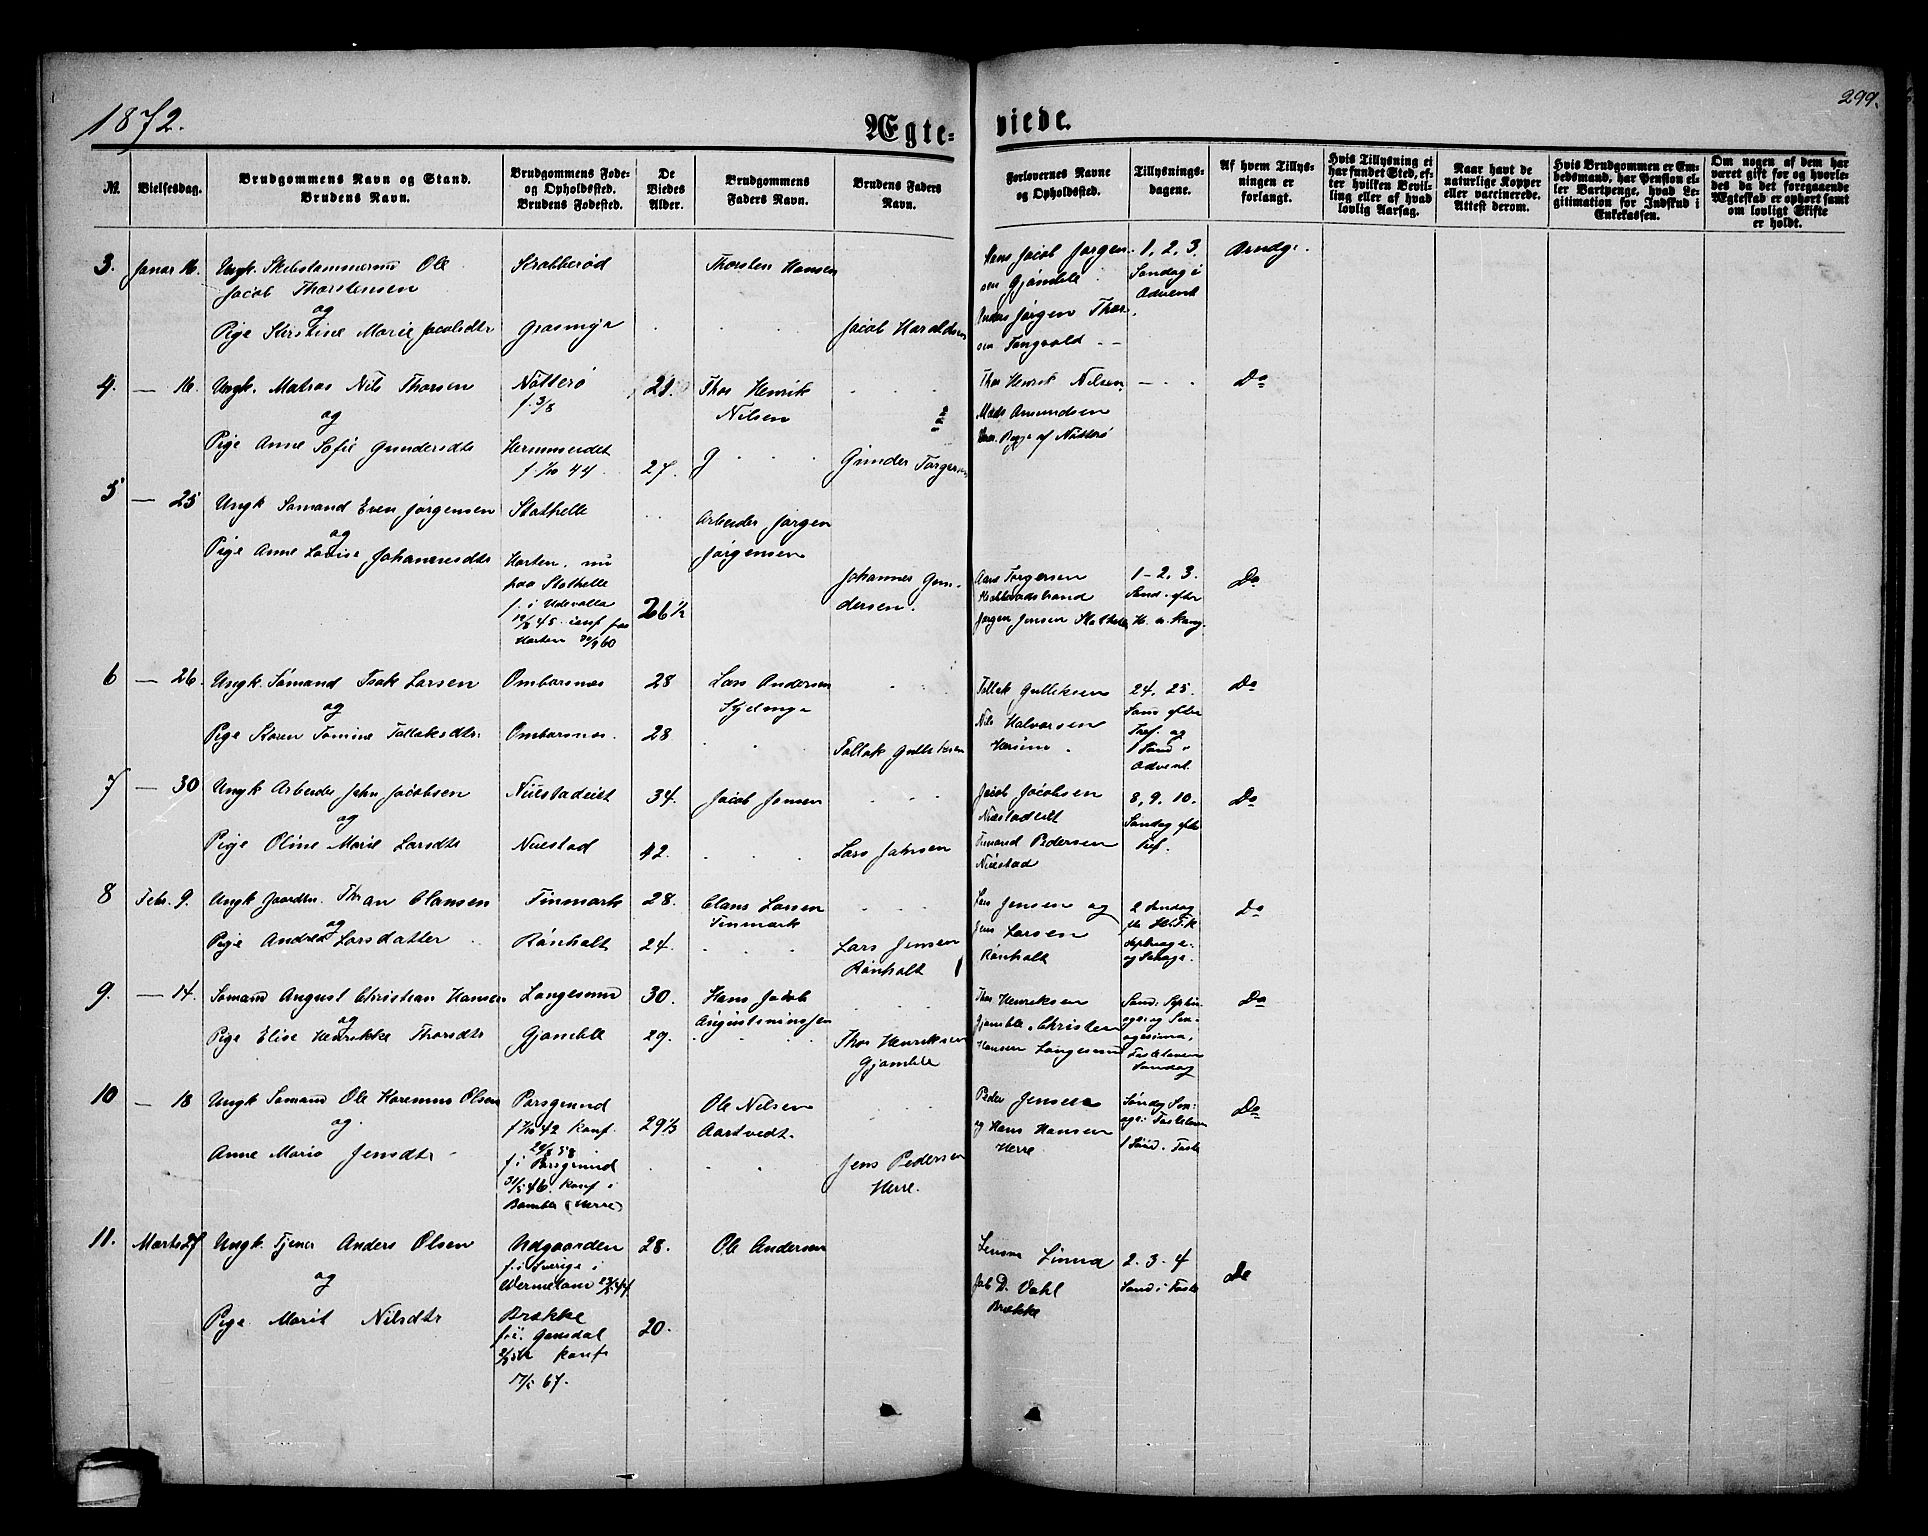 1872.
Ægte-
viede.
299.
№.
Vielsesdag.
Brudgommens Navn og Stand.
Brudens Navn.
Brudgommens Føde-
og Opholdssted.
Brudens Fødested.
De
Viedes
Alder.
Brudgommens
Faders Navn.
Brudens Faders
Navn.
Forlovernes Navne
og Opholdssted.
Tillysnings-
dagene.
Af hvem Tillys-
ningen er
forlangt.
Hvis Tillysning ei
har fundet Sted, ef-
ter hvilken Bevil-
ling eller af hvad
lovlig Aarsag.
Naar havt de
naturlige Kopper
eller vaccinerede.
Attest derom.
Hvis Brudgommen er Em-
bedsmand, har Pension el-
ler Vartpenge, hvad Le-
gitimation for Indskud i
Enkekassen.
Om nogen af dem har
været gift før og hvorle-
des da det foregaaende
Ægteskab er ophørt samt
om lovligt Skifte
er holdt.
3. Januar 16. Ungk. Skibstømmermd Ole
Jacob Thorstensen
og
Pige Kirstine Marie Jacobsdtr
Krabberød
Grasmyr
Thorsten Hansen
Jacob Haraldsen
Hans Jacob Jørgen-
sen Gjømle
Anders Jørgen Thor-
sen Tangvald
1, 2, 3.
Søndag i
Advent
Brudg.
4. — 16. Ungk. Matros Nils Thorsen
og
Pige Anne Sofie Gundersdtr
Nøtterø
f. 3/8
f. 1/10 44.
28.
27.
Thor Henrik
Nilsen
Gunder Torgersen
Thor Henrik Nilsen
Mads Amundsen
af Nøtterø
Do
5 — 25 Ungk Sømand Even Jørgensen
og
Pige Anne Lovise Johannesdtr
Stathelle
Horten, nu
paa Stathelle
f. i Udevalla
45. conf. paa
Horten 60
26 1/2
Arbeider Jørgen
Jørgensen
Johannes Gun-
dersen.
Aars Torgersen
Krabberødstrand
Jørgen Jensen Stathelle
1-2, 3.
Sønd. efter
H. 3 Kong.
Do
6 — 26. Ungk. Sømand Isak Larsen
og
Pige Karen Tomine Tollaksdtr
Ombarsnes
Ombarsnes.
28
28
Lars Andersen
Tollak Gulliksen
Tollak Gulliksen
Nils Halvorsen
24. 25.
Sønd efter
Tref. og
1 Sønd i
Advent.
Do
7 — 30 Ungk Arbeider John Jacobsen
og
Pige Oline Marie Larsdtr
Nustadeiet
Nustad
34.
42.
Jacob Jensen
Lars Jahnsen
Jacob Jacobsen
Nustadeiet
Amund Pedersen
Nustad
8, 9. 10.
Søndag efter
Tref.
Do
8 Febr. 9. Ungk Olausen
og
Pige Andrea Larsdatter
Tinmark
Rønholt
28.
24.
Claus Larsen
Tinmark
Lars Jensen
Rønholt
Lars Jensen og
Jens Larsen
Rønholt
2 Søndag
Do
9. — 14. Sømand August Christian Hansen
og
Pige Elise Henrikke Thorsdtr
Langesund
Gjømle
30.
29.
Hans Jacob
Augustinussen
Thor Henriksen
Gjømle
Thor Henriksen
Gjømle, Christen
Hansen Langesund
Fastelavns
Søndag
Do
10 — 18 Ungk Sømand Ole Karenius Olsen
og.
Anne Maria Jensdtr
Porsgrund
42 Konf.
f. i Porsgrund
46. Konf i
Bamble (Herre)
29 1/3
Ole Nilsen
Aartvedt.
Jens Pedersen
Herre.
Peder Jensen
og Hans Hansen
Herre
1 Sønd. Faste
Do
11. Marts 27 Ungk. Tjener Anders Olsen
og
Pige Marit Nilsdtr
Udgaarden
f. i Sverige i
Wermeland 44
Brække
konf
67.
28.
20.
Ole Andersen
Lensm Linna
Jab D. Dahl
Brække
2. 3. 4
Sønd i Faste
Do